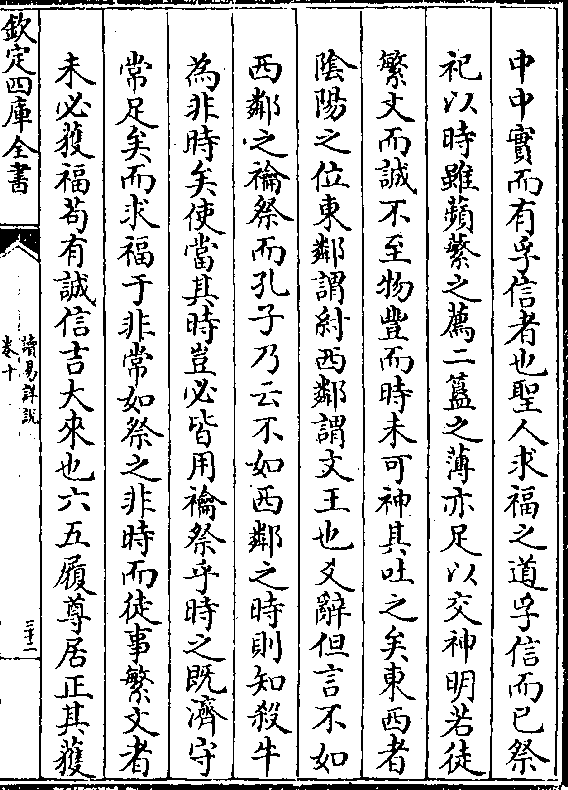 中中實而有孚信者也聖人求福之道孚信而已祭
祀以時雖蘋蘩之薦二簋之薄亦足以交神明若徒
繁文而誠不至物豐而時未可神其吐之矣東西者
陰陽之位東鄰謂紂西鄰謂文王也爻辭但言不如
西鄰之禴祭而孔子乃云不如西鄰之時則知殺牛
為非時矣使當其時豈必皆用禴祭乎時之既濟守
常足矣而求福于非常如祭之非時而徒事繁文者
未必獲福苟有誠信吉大來也六五履尊居正其獲
欽定四庫全書
讀易詳説
卷十
三十二